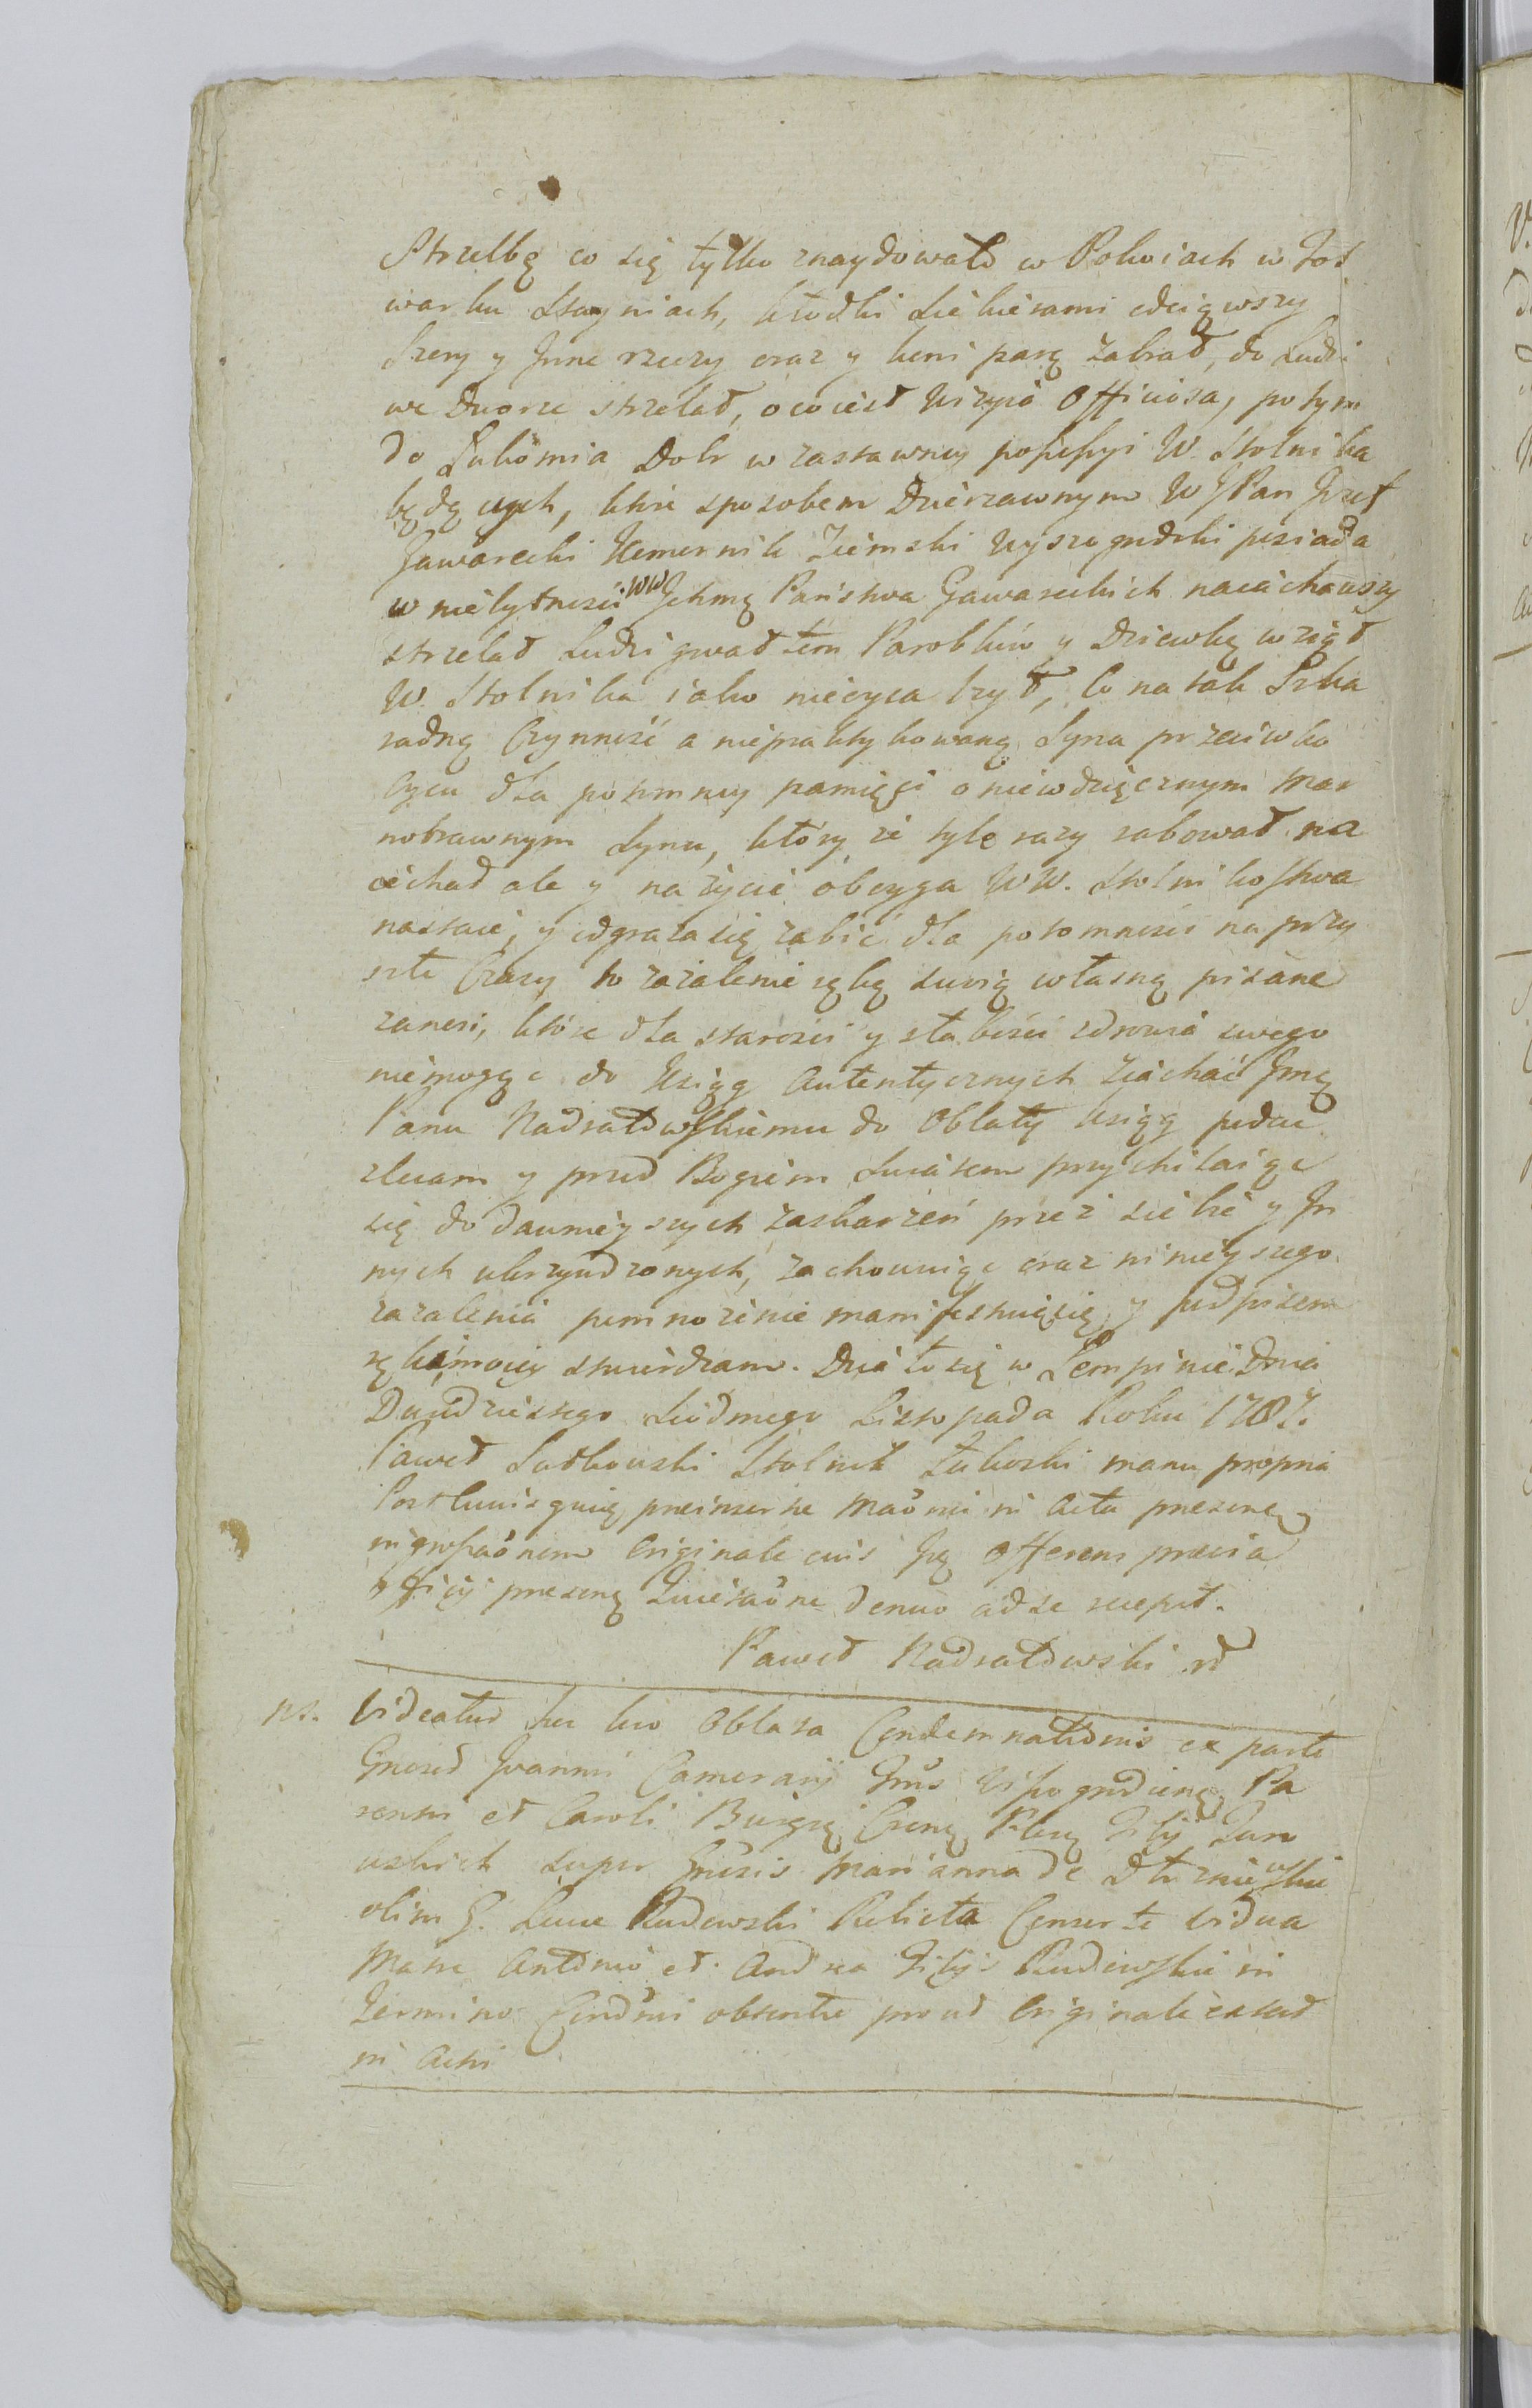 Strzelbę co się tylko znaydowało w Pokoiach w Fol
warku Stayniach, kłodki Siekierami odciąwszy
Szery y Inne rzeczy oraz y koni parę zabrał, do Ludzi
we Dworze strzelał, o co iest Wizyia Officiosa, potym
do Lukomia Dobr w zastawney possessyi W. Stolnika
będących, które sposobem Dzierzawnym WJPan Jozef
Gawarecki Komornik Ziemski Wyszogrodzki posiada
w niebytności WW Ichmę Państwa Gawareckich naiachawszy
strzelał Ludzi gwałtem Parobków y Dziewkę wziął
W. Stolnika iako nieoyca bzył, Co na tak Szka
radną Czynność a niepraktykowaną Syna przeciwko
Oycu dla potomney pamięci o niewdzięcznym mar
notrawnym Synu, który że tyle razy rabował na
iechał ale y na życie oboyga WW. Stolnikostwa
nastaie, y odgraza się zabić dla potomności na przy
szłe Czasy to zażalenie ręką swoią własną pisane
zanosi, które dla starości y słabości zdrowia swego
niemogąc do Ksiąg Autentycznych ziachać Jmę
Panu Nadratowskiemu do Oblaty ksiąg podać
zlecam y przed Bogiem Swiatem przychilaiąc
się do dawnieyszych zaskarzeń przez siebie y In
nych uberzyudzonych, zachowuiąc oraz ninieyszego
zazalenia pomnożenie manifestuię się y podpisem
ręki moiey stwierdzam. Działo się w Lempinie Dnia
Dwudziestego Siódmego Listopada Roku 1787.
Paweł Sutkowski Stolnik Łukoski manu propria
Post cuius quię preinserte Maõnii in Acta presenę
ingrossaõnem Originale eius Ię Offerens prævia
Officij presenę Quietaõne denuo ad se recepit.
Paweł Nadratowski rł
ns. Videatur hic loco Oblata Condemnationis ex parte
Gnosd Joannis Camerarij Grus Visogrodienę Pa
rentis et Caroli Burgrę Crenę Plocę Filij Jan
uskich super Gnosis Marianna de Dłuzniewskie
olim G. Lucæ Rudowski Relicta Consorte Vidua
Matre Antonio et Andrea Filijs Rudowskie in
Termino Condõni obtenta prout Originale extat
in Actis